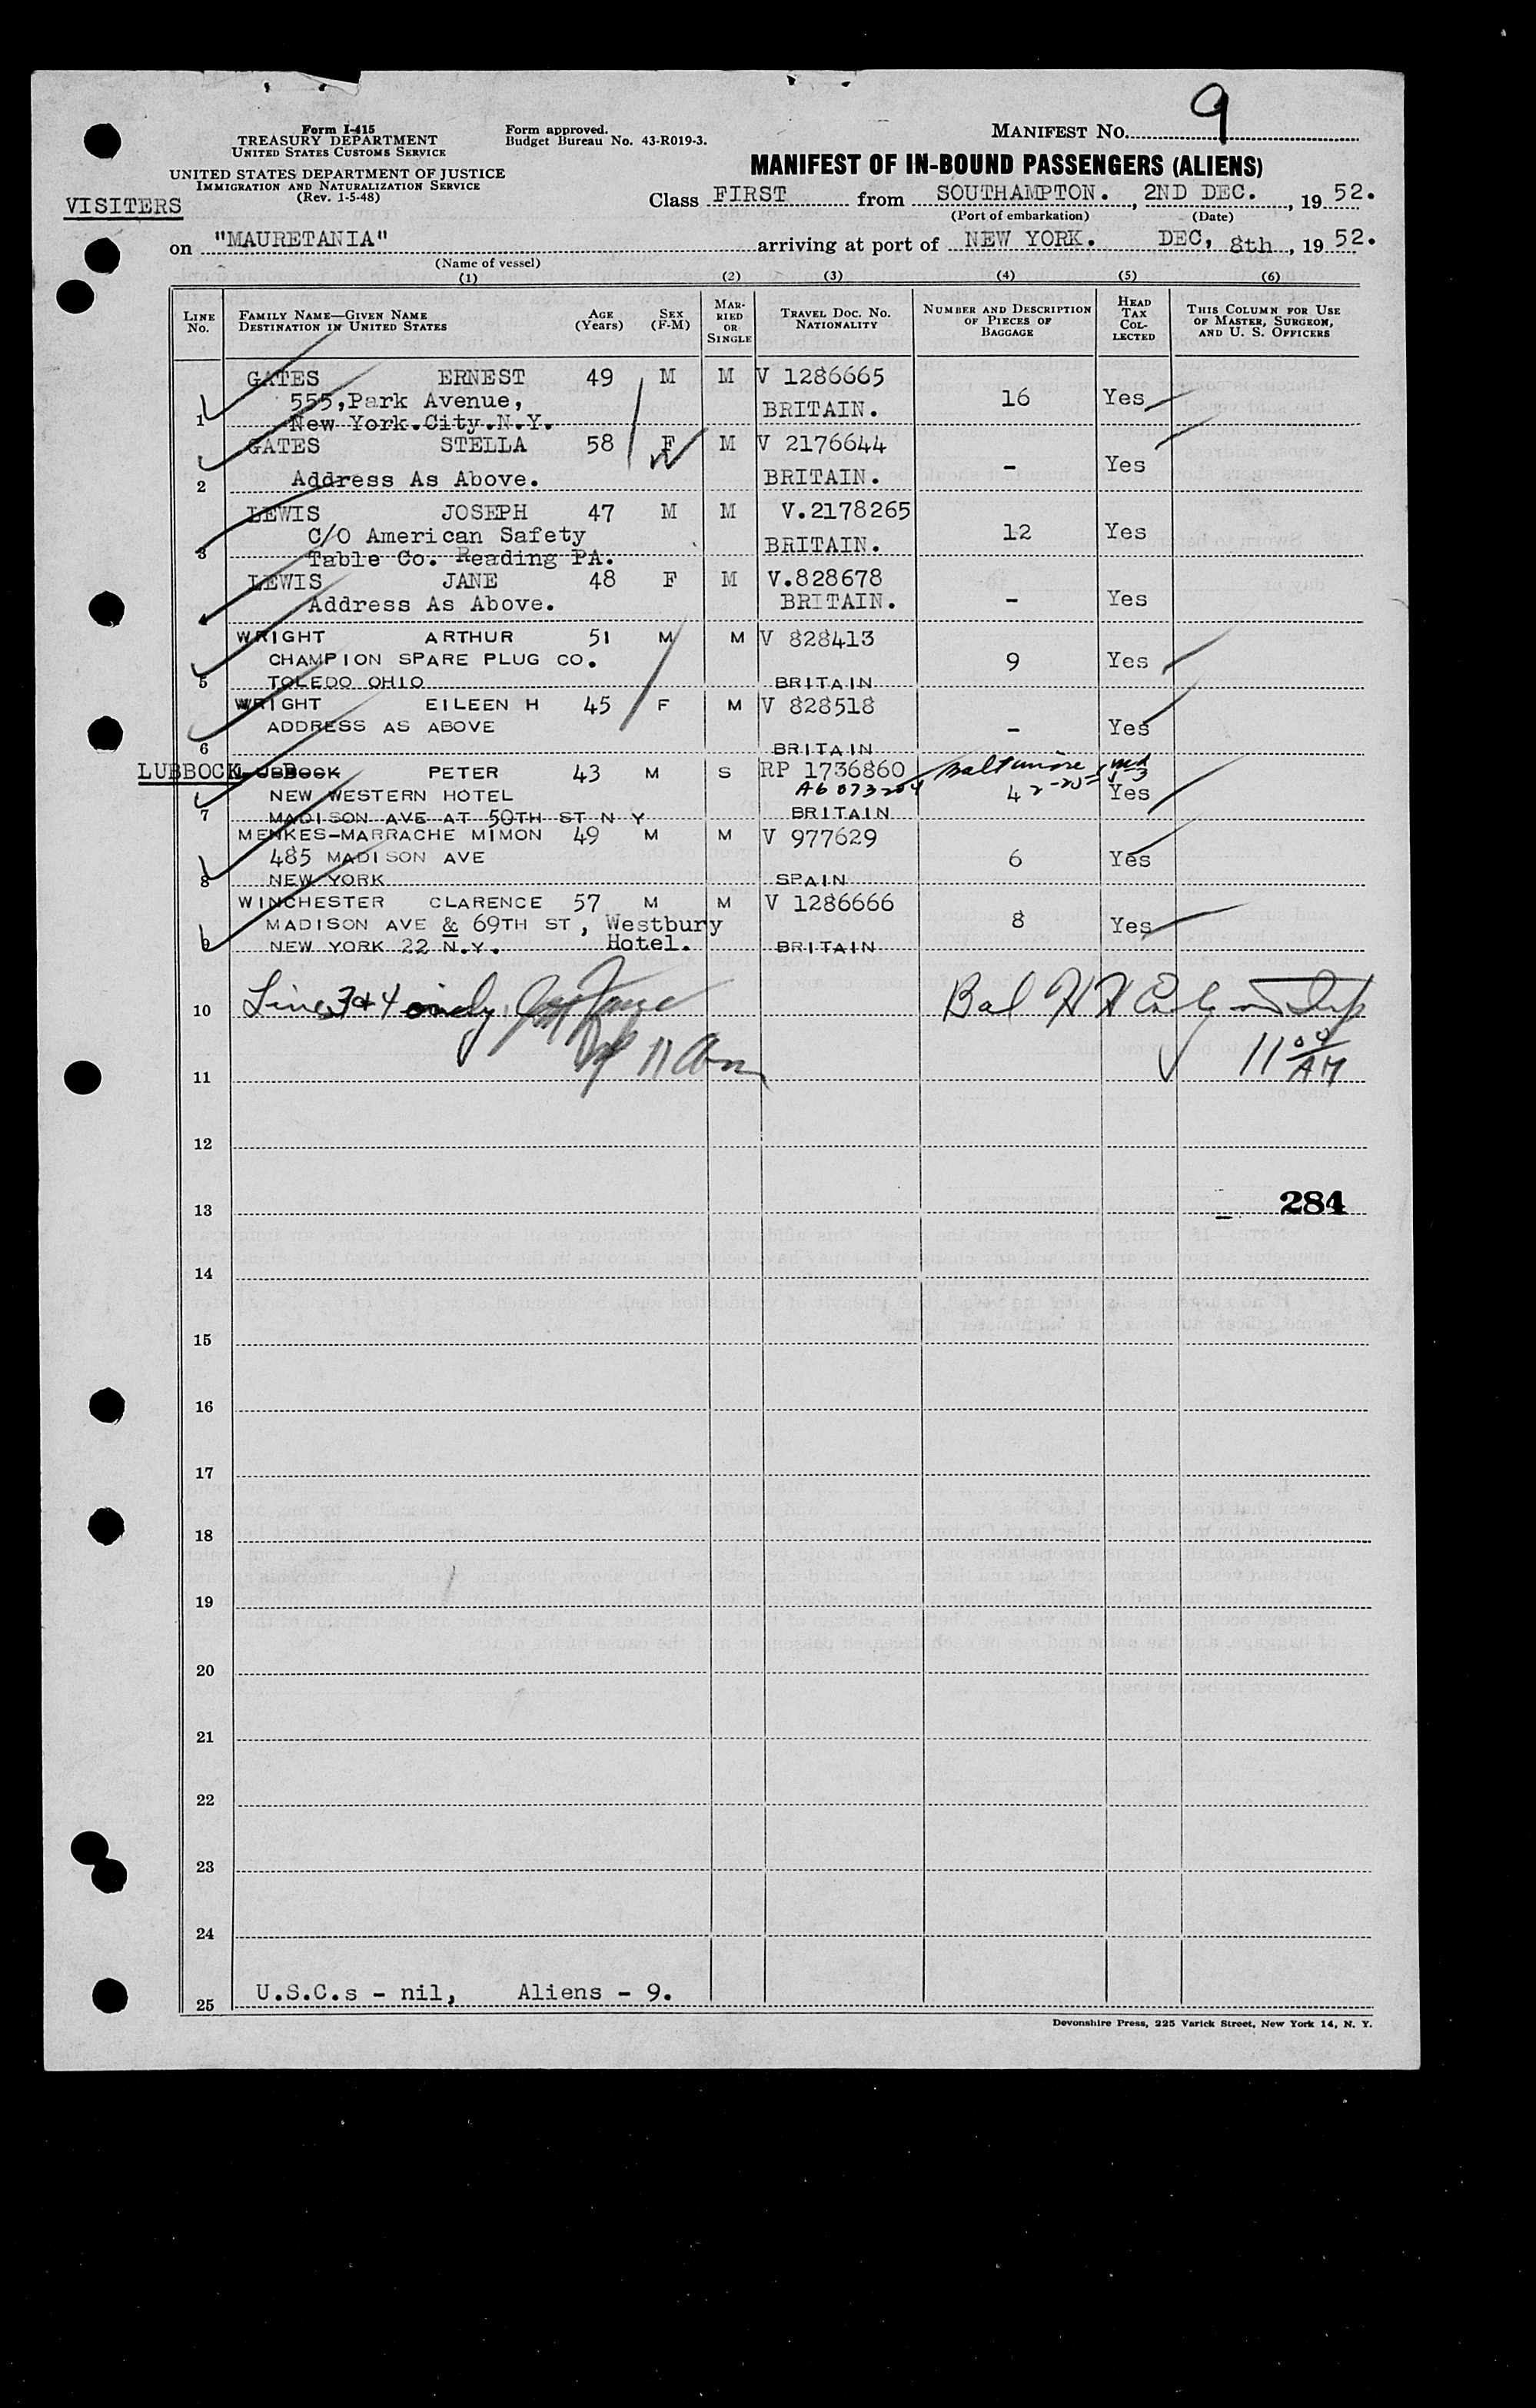 9
MANIFEST No.
Form I-415
TREASURY DEPARTMENT
UNITED STATES CUSTOMS SERVICE
Form approved.
Budget Bureau No. 43-R019-3.
UNITED STATES DEPARTMENT OF JUSTICE
IMMIGRATION AND NATURALIZATION SERVICE
(Rev. 1-5-48)
VISITERS
MANIFEST OF IN-BOUND PASSENGERS (ALIENS)
Class FIRST from SOUTHAMPTON. , 2ND DEC. , 19 52.
(Port of embarkation) (Date)
on "MAURETANIA" arriving at port of NEW YORK. DEC, 8th , 19 52.
(Name of vessel)
(1) (2) (3) (4) (5) (6)
LINE No. FAMILY NAME—GIVEN NAME DESTINATION IN UNITED STATES AGE (Years) SEX (F-M) MARRIED OR SINGLE TRAVEL DOC. NO. NATIONALITY NUMBER AND DESCRIPTION OF PIECES OF BAGGAGE HEAD TAX COLLECTED THIS COLUMN FOR USE OF MASTER, SURGEON, AND U. S. OFFICERS
GATES ERNEST 49 M M V 1286665
555,Park Avenue, BRITAIN. 16 Yes
1 New York.City.N.Y.
GATES STELLA 58 F M V 2176644
- Yes
2 Address As Above. BRITAIN.
LEWIS JOSEPH 47 M M V.2178265
C/O American Safety BRITAIN. 12 Yes
3 Table Co. Reading PA.
LEWIS JANE 48 F M V.828678
Address As Above. BRITAIN. - Yes
4
WRIGHT ARTHUR 51 M M V 828413
CHAMPION SPARE PLUG CO. 9 Yes
5 TOLEDO OHIO BRITAIN
WRIGHT EILEEN H 45 F M V 828518
ADDRESS AS ABOVE - Yes
6 BRITAIN
LUBBOCK PETER 43 M S RP 1736860 Baltimore
NEW WESTERN HOTEL A6 073204 4 Yes
7 MADISON AVE AT 50TH ST N Y BRITAIN
MENKES-MARRACHE MIMON 49 M M V 977629
485 MADISON AVE 6 Yes
8 NEW YORK SPAIN
WINCHESTER CLARENCE 57 M M V 1286666
MADISON AVE & 69TH ST, Westbury 8 Yes
9 NEW YORK 22 N.Y. Hotel. BRITAIN
10 Lines 3 & 4 only Bal
11 11 am 11 00 AM
12
13 284
14
15
16
17
18
19
20
21
22
23
24
25 U.S.C.s - nil, Aliens - 9.
Devonshire Press, 225 Varick Street, New York 14, N. Y.